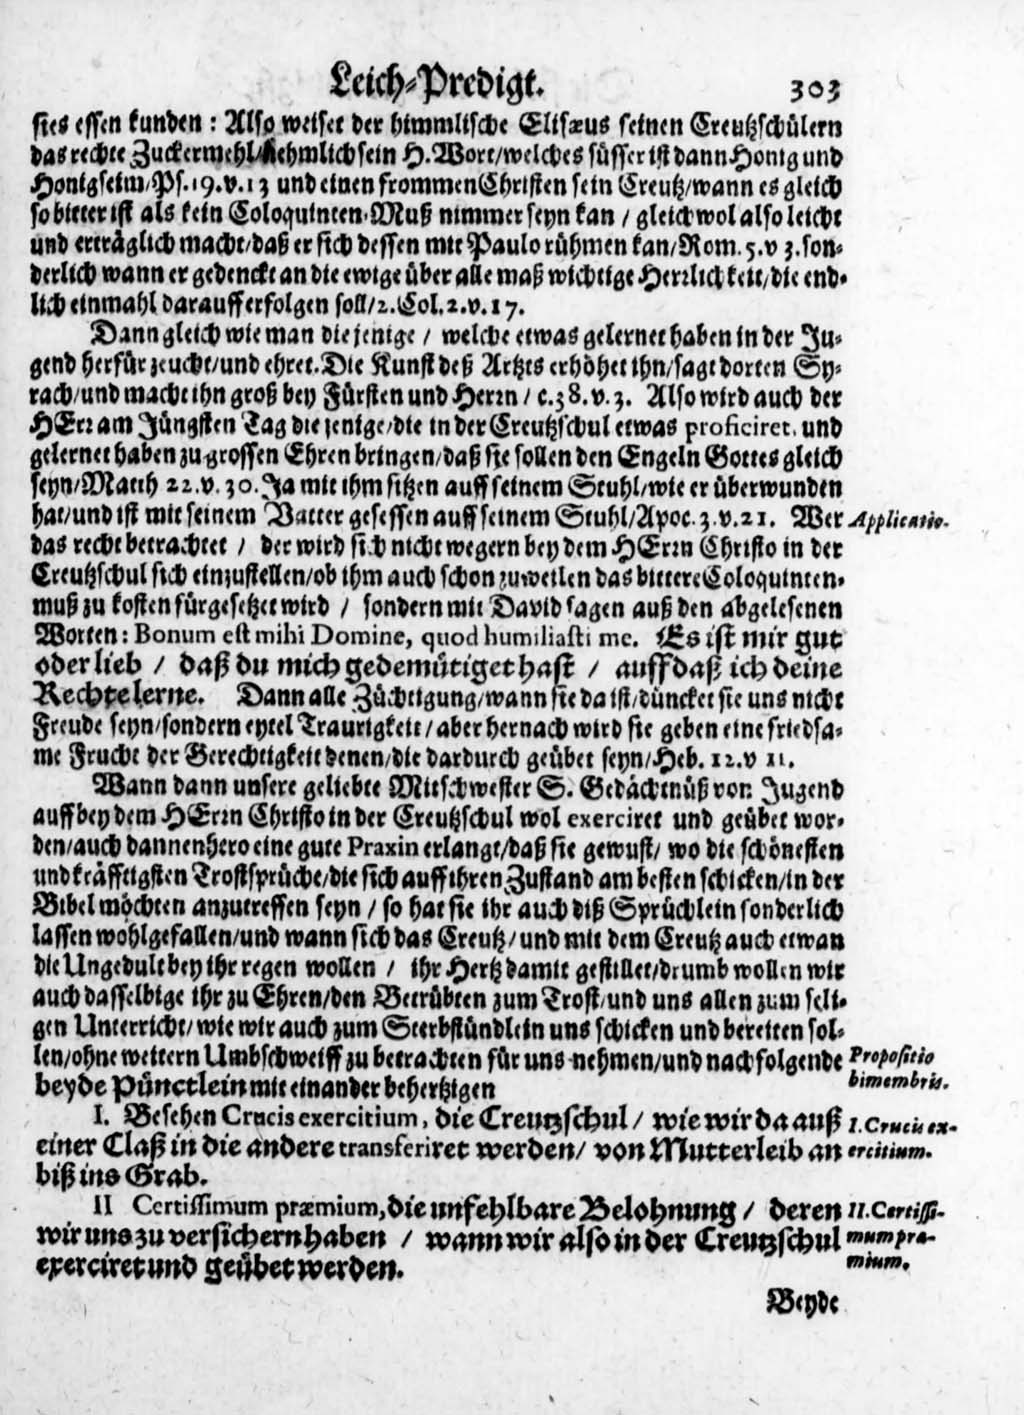 Leich-Predigt. 303
sies essen kunden: Also weiset der himmlische Elisæus seinen Creutzschülern
das rechte Zuckermehl/nehmlich sein H. Wort/welches süsser ist dann Honig und
Honigseim/Ps. 19. v. 13 und einen frommen Christen sein Creutz/wann es gleich
so bitter ist als kein Coloquinten-Muß nimmer seyn kan / gleichwol also leicht
und erträglich macht/daß er sich dessen mit Paulo rühmen kan/Rom. 5. v 3. son-
derlich wann er gedenckt an die ewige über alle maß wichtige Herrlichkeit/die end-
lich einmahl darauff erfolgen soll/2. Col. 2. v. 17.
Dann gleich wie man die jenige / welche etwas gelernet haben in der Ju-
gend herfür zeucht/und ehret. Die Kunst deß Artzts erhöhet ihn/sagt dorten Sy-
rach/und macht ihn groß bey Fürsten und Herrn / c. 38. v. 3. Also wird auch der
HErr am Jüngsten Tag die jenige/die in der Creutzschul etwas proficiret, und
gelernet haben zu grossen Ehren bringen/daß sie sollen den Engeln Gottes gleich
seyn/Matth 22. v. 30. Ja mit ihm sitzen auff seinem Stuhl/wie er überwunden
hat/und ist mit seinem Vatter gesessen auff seinem Stuhl/Apoc. 3. v. 21. Wer
Applicatio.
das recht betrachtet / der wird sich nicht wegern bey dem HErrn Christo in der
Creutzschul sich einzustellen/ob ihm auch schon zuweilen das bittere Coloquinten-
muß zu kosten fürgesetzet wird / sondern mit David sagen auß den abgelesenen
Worten: Bonum est mihi Domine, quod humiliasti me. Es ist mir gut
oder lieb / daß du mich gedemütiget hast / auff daß ich deine
Rechte lerne. Dann alle Züchtigung/wann sie da ist/düncket sie uns nicht
Freude seyn/sondern eytel Traurigkeit/aber hernach wird sie geben eine friedsa-
me Frucht der Gerechtigkeit denen/die dardurch geübet seyn/Heb. 12. v 11.
Wann dann unsere geliebte Mitschwester S. Gedächtnüß von Jugend
auff bey dem HErrn Christo in der Creutzschul wol exerciret und geübet wor-
den/auch dannenhero eine gute Praxin erlangt/daß sie gewust/ wo die schönesten
und kräfftigsten Trostsprüche/die sich auff ihren Zustand am besten schicken/in der
Bibel möchten anzutreffen seyn / so hat sie ihr auch diß Sprüchlein sonderlich
lassen wohlgefallen/und wann sich das Creutz/und mit dem Creutz auch etwan
die Ungedult bey ihr regen wollen / ihr Hertz damit gestillet/drumb wollen wir
auch dasselbige ihr zu Ehren/den Betrübten zum Trost/und uns allen zum seli-
gen Unterricht/wie wir auch zum Sterbstündlein uns schicken und bereiten sol-
len/ohne weitern Umbschweiff zu betrachten für uns nehmen/und nachfolgende
Propositio
bimembris.
beyde Pünctlein mit einander behertzigen
I. Besehen Crucis exercitium, die Creutzschul / wie wir da auß
I. Crucis ex-
einer Claß in die andere transferiret werden/ von Mutterleib an
ercitium.
biß ins Grab.
II Certissimum præmium, die unfehlbare Belohnung / deren
II. Certissi-
wir uns zu versichern haben / wann wir also in der Creutzschul
mum præ-
exerciret und geübet werden.
mium.
Beyde